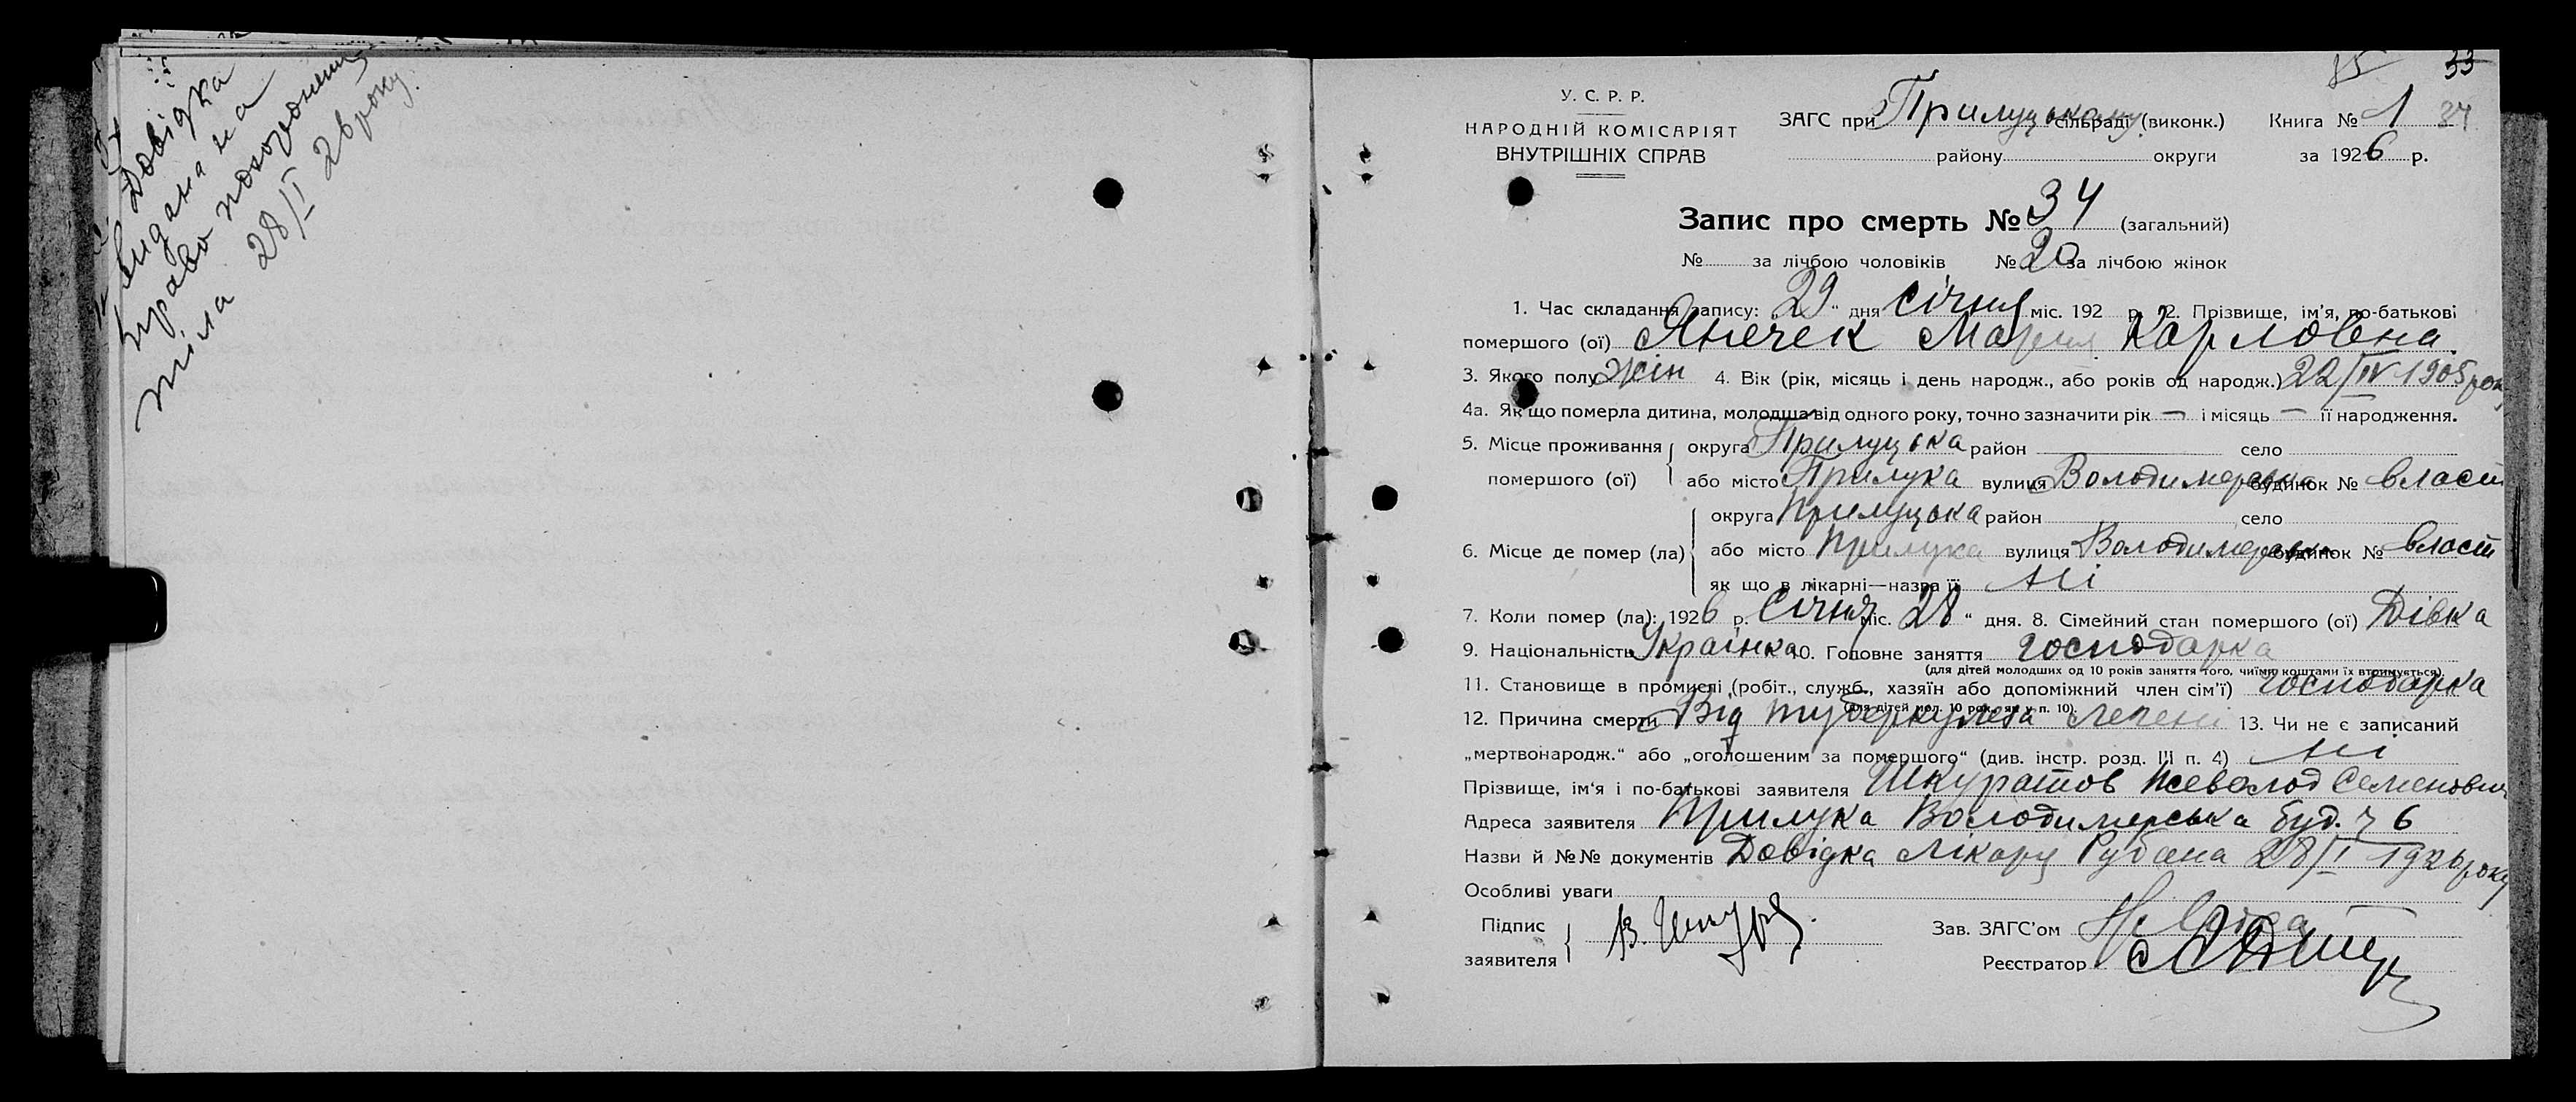 Довідка
видана на
право похоронення
тіла 28/I 26 року.
15 33
У. С. Р. Р.
НАРОДНІЙ КОМІСАРІЯТ
ВНУТРІШНІХ СПРАВ
ЗАГС при Прилуцькому сільраді (виконк.) Книга № 1 34
району округи за 1926 р.
Запис про смерть № 34 (загальний)
№ за лічбою чоловіків № 20 за лічбою жінок
1. Час складання запису: „29“ дня січня міс. 192 р. 2. Прізвище, ім'я, по-батькові
помершого (ої) Янечек Мария Карловна
3. Якого полу жін 4. Вік (рік, місяць і день народж., або років од народж.) 22/IV 1905 року
4а. Як що померла дитина, молодша від одного року, точно зазначити рік — і місяць — її народження.
5. Місце проживання округа Прилуцька район село
помершого (ої) або місто Прилука вулиця Володимерська будинок № власн
округа Прилуцька район село
6. Місце де помер (ла) або місто Прилука вулиця Володимерська будинок № власн
як що в лікарні—назва її Ні
7. Коли помер (ла): 1926 р. Січня міс. „28“ дня. 8. Сімейний стан помершого (ої) Дівка
9. Національність Українка 10. Головне заняття господарка
(для дітей молодших од 10 років заняття того, чиїми коштами їх втримується).
11. Становище в промислі (робіт., служб., хазяїн або допоміжний член сім'ї) господарка
(для дітей мол. 10 рок., як у п. 10).
12. Причина смерти Від туберкульоза легени 13. Чи не є записаний
„мертвонародж.“ або „оголошеним за помершого“ (див. інстр. розд. III п. 4) Ні
Прізвище, ім'я і по-батькові заявителя Шкуратов Всеволод Семенович
Адреса заявителя Прилука Володимерська буд. ч 6
Назви й №№ документів Довідка лікаря Рубана 28/I 1926 року
Особливі уваги
Підпис В. Шкур Зав. ЗАГС'ом
заявителя Реєстратор